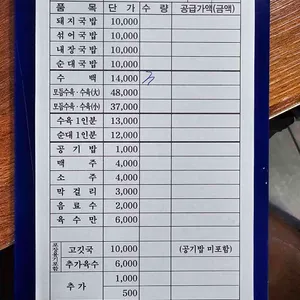 품 목 단 가 수 량 공급가액(금액)
돼지국밥 10,000
섞어국밥 10,000
내장국밥 10,000
순대국밥 10,000
수 백 14,000
모듬수육·수육(大) 48,000
모듬수육·수육(小) 37,000
수육 1인분 13,000
순대 1인분 12,000
공 기 밥 1,000
맥 주 4,000
소 주 4,000
막 걸 리 3,000
음 료 수 2,000
육 수 만 6,000
고깃국 10,000 (공기밥 미포함)
추가육수 6,000
추 가 1,000
500